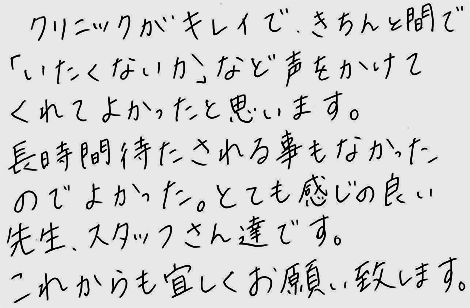 クリニックがキレイで、きちんと間で
「いたくないか」など声をかけて
くれてよかったと思います。
長時間待たされる事もなかった
のでよかった。とても感じの良い
先生、スタッフさん達です。
これからも宜しくお願い致します。